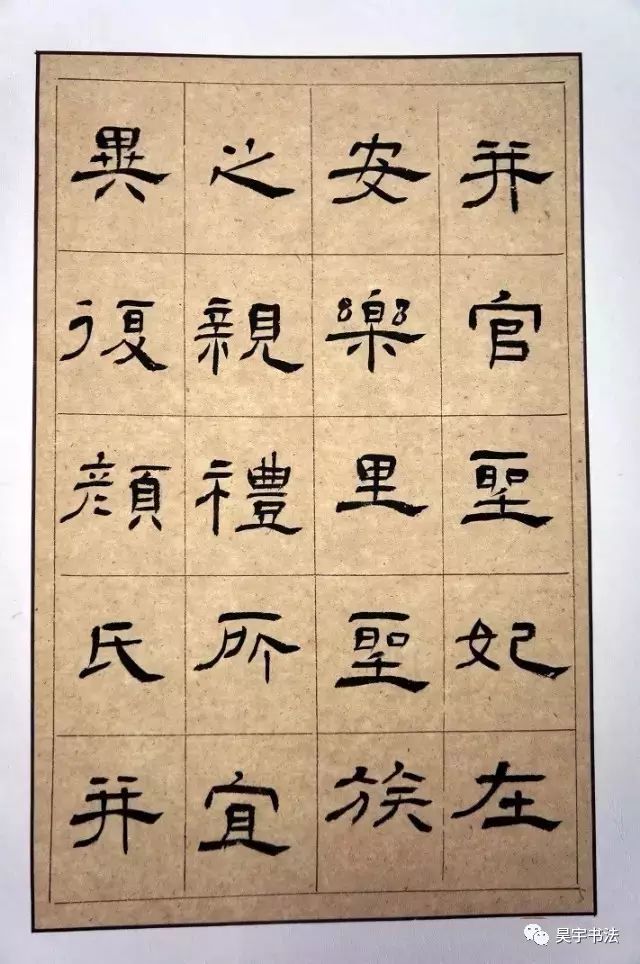 并官聖妃在
安樂里聖族
之親禮所宜
異復顏氏并
昊宇书法